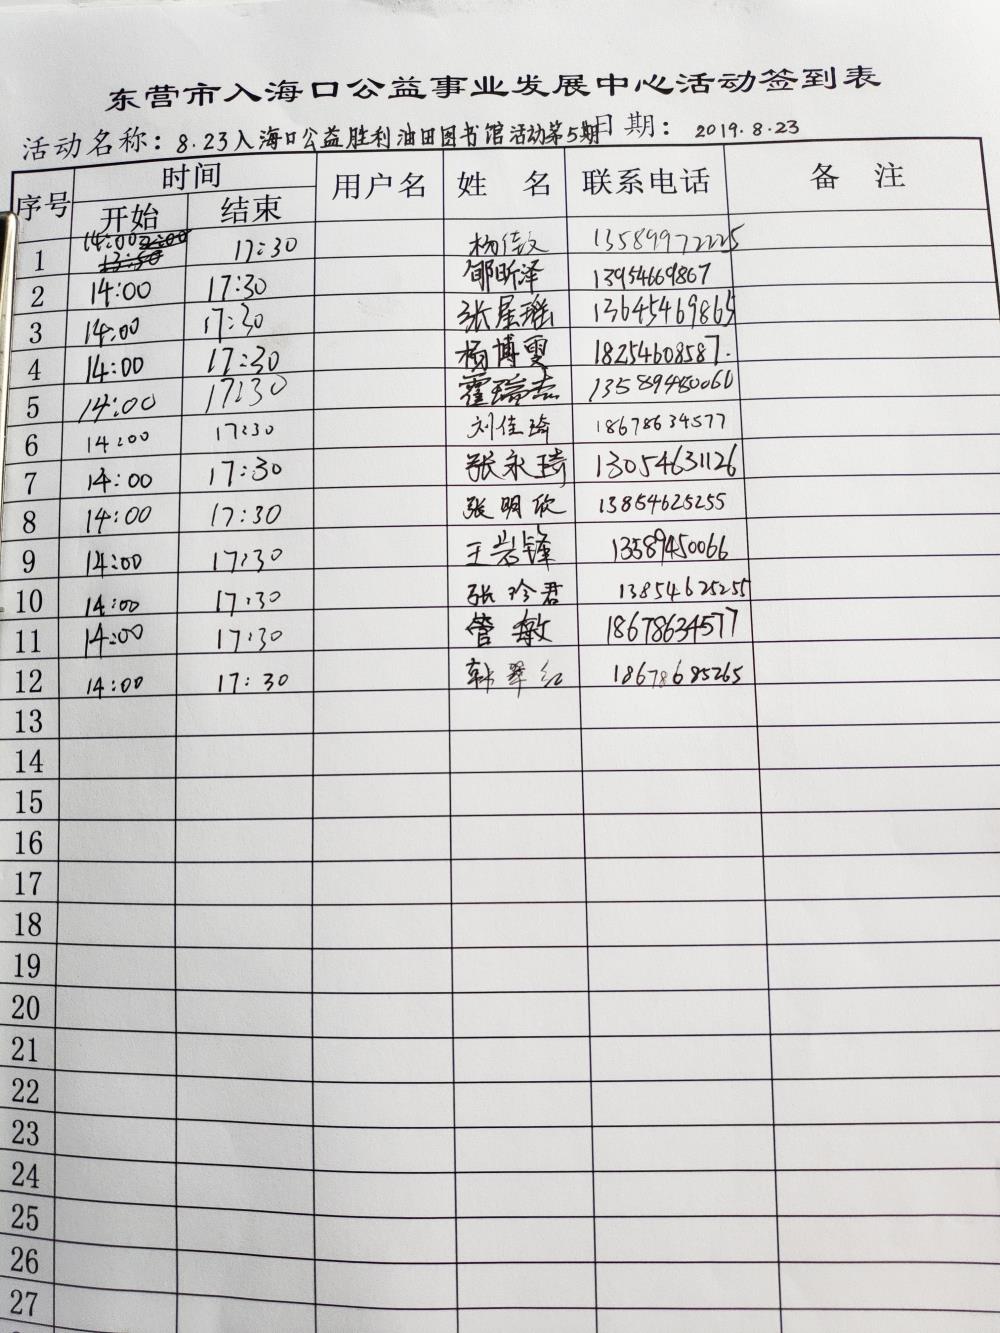 东营市入海口公益事业发展中心活动签到表
活动名称：8.23入海口公益胜利油田图书馆活动第5期 日期：2019.8.23
序号 时间 用户名 姓 名 联系电话 备 注
开始 结束
1 14:00 17:30 杨佳文 13589972225
2 14:00 17:30 郇昕泽 13954669867
3 14:00 17:30 张星瑶 13645469865
4 14:00 17:30 杨博雯 18254608587.
5 14:00 17:30 霍瑞杰 13589450066
6 14:00 17:30 刘佳琦 18678634577
7 14:00 17:30 张永琦 13054631126
8 14:00 17:30 张明欣 13854625255
9 14:00 17:30 王岩锋 13589450066
10 14:00 17:30 张珍君 13854625255
11 14:00 17:30 管敏 18678634577
12 14:00 17:30 韩翠红 18678685265
13
14
15
16
17
18
19
20
21
22
23
24
25
26
27